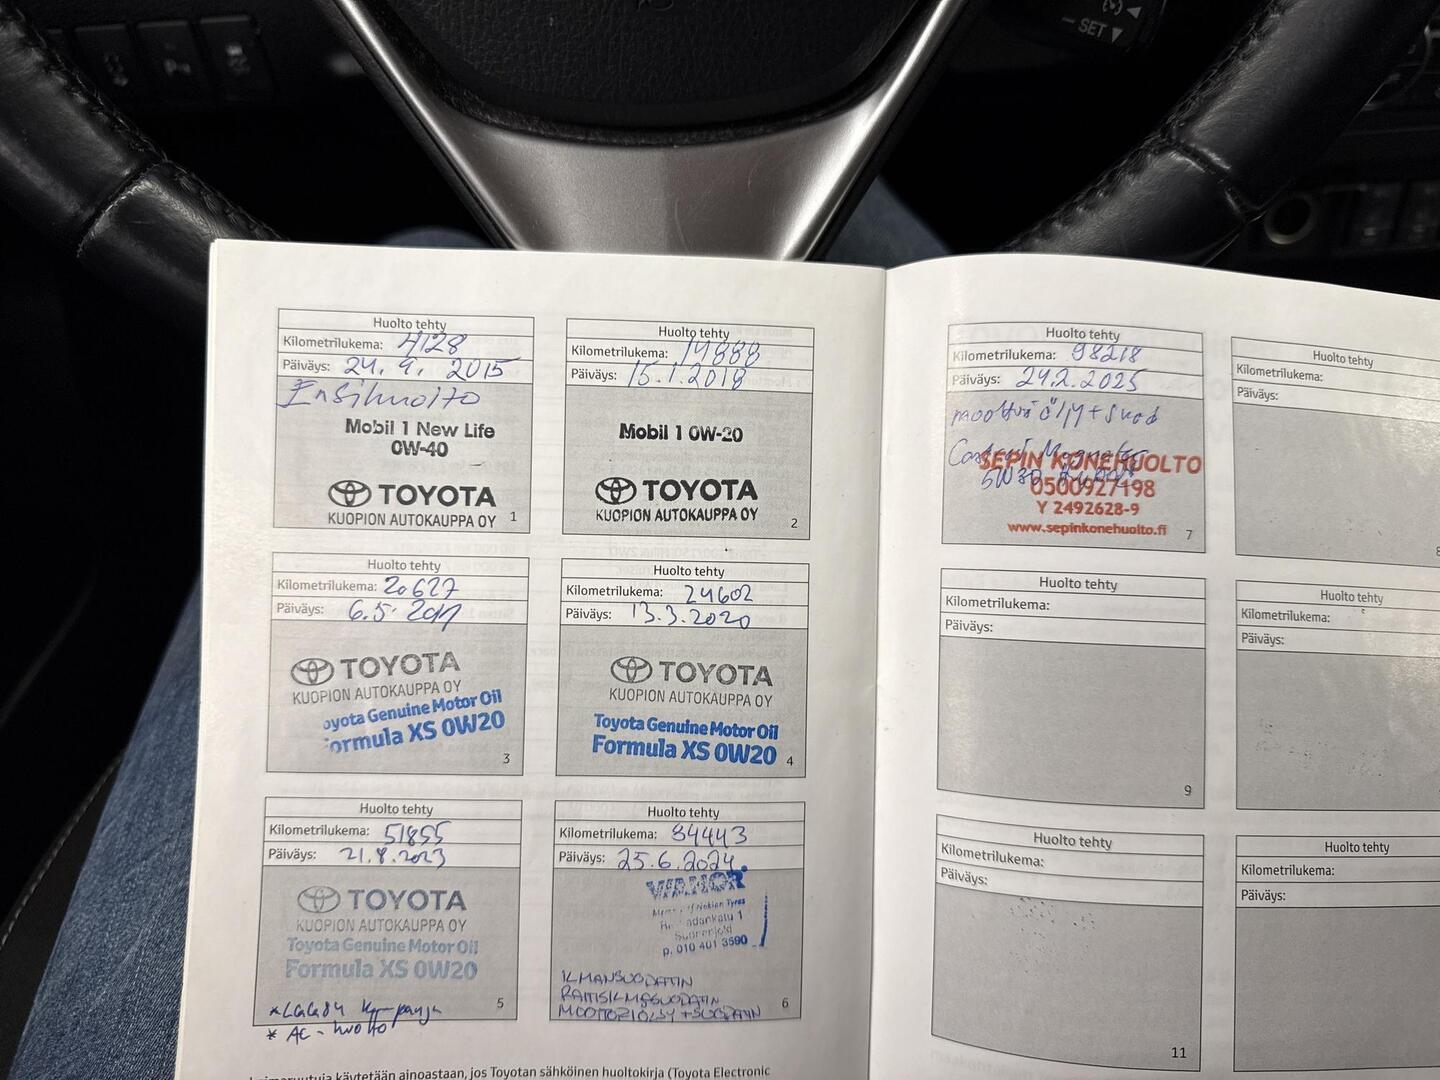 SET
Huolto tehty
Kilometrilukema: 4128
Päiväys: 24.9. 2015
Ensihuolto
Mobil 1 New Life
0W-40
TOYOTA
KUOPION AUTOKAUPPA OY
1
Huolto tehty
Kilometrilukema: 14888
Päiväys: 15.1.2018
Mobil 1 0W-20
TOYOTA
KUOPION AUTOKAUPPA OY
2
Huolto tehty
Kilometrilukema: 20627
Päiväys: 6.5.
TOYOTA
KUOPION AUTOKAUPPA OY
oyota Genuine Motor Oil
ormula XS 0W20
3
Huolto tehty
Kilometrilukema: 24602
Päiväys: 13.3.2020
TOYOTA
KUOPION AUTOKAUPPA OY
Toyota Genuine Motor Oil
Formula XS 0W20
4
Huolto tehty
Kilometrilukema: 51855
Päiväys: 21.8.2023
TOYOTA
KUOPION AUTOKAUPPA OY
Toyota Genuine Motor Oil
Formula XS 0W20
5
* AC-huolto
Huolto tehty
Kilometrilukema: 84443
Päiväys: 25.6.2024.
VIANOR
Nokian Tyres
1
p. 010 401 3590
ILMANSUODATIN
RAITISILMASUODATIN
MOOTTORIÖLJY + SUODATIN
6
Huolto tehty
Kilometrilukema: 98218
Päiväys: 24.2.2025
moottoriöljy + suod
Castrol Magnatec
5W30
SEPIN KONEHUOLTO
0500927198
Y 2492628-9
www.sepinkonehuolto.fi
7
Huolto tehty
Kilometrilukema:
Päiväys:
8
Huolto tehty
Kilometrilukema:
Päiväys:
9
Huolto tehty
Kilometrilukema:
Päiväys:
Huolto tehty
Kilometrilukema:
Päiväys:
11
Huolto tehty
Kilometrilukema:
Päiväys:
käytetään ainoastaan, jos Toyotan sähköinen huoltokirja (Toyota Electronic